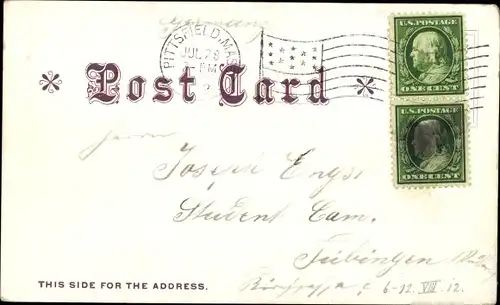 Germany
PITTSFIELD, MASS.
JUL 28
PM
U.S. POSTAGE
ONE CENT
U.S. POSTAGE
ONE CENT
Post Card
Herrn
Joseph
Student Cam.
Tübingen
THIS SIDE FOR THE ADDRESS.
6-12. VIII 12.